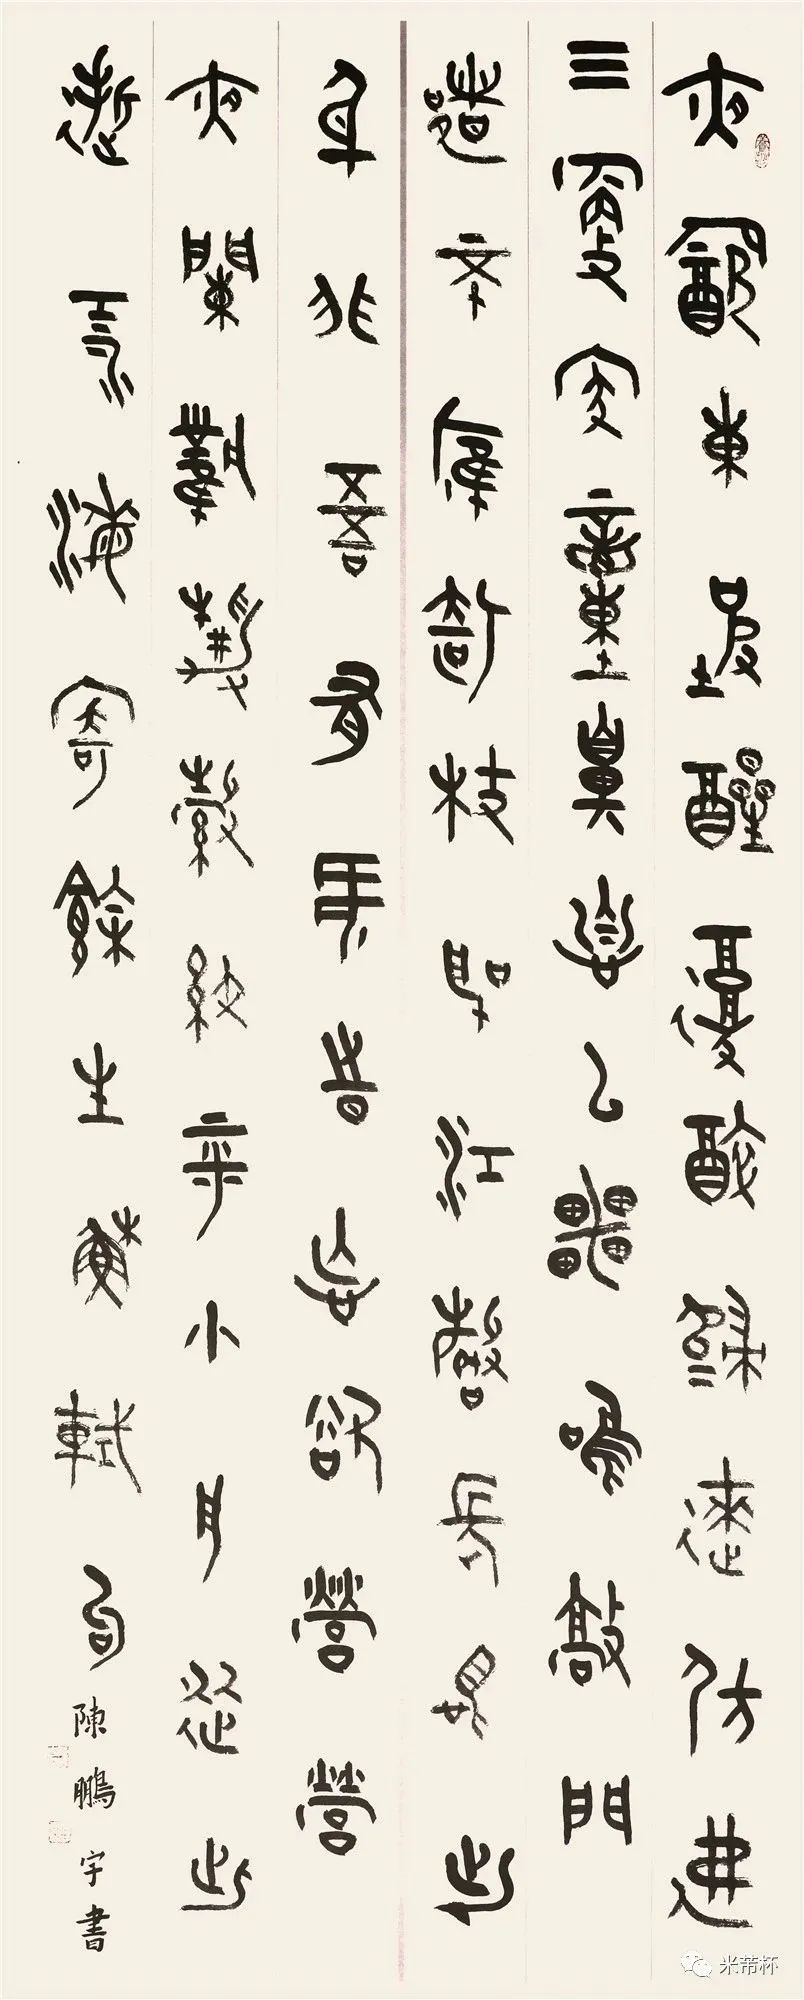 夜飲東坡醒復醉歸來仿佛
三更家童鼻息已雷鳴敲門
都不應倚杖聽江聲長恨此
身非吾有何時忘卻營營
夜闌風靜縠紋平小舟從此
逝江海寄餘生蘇軾詞
陳鵬宇書
米芾杯